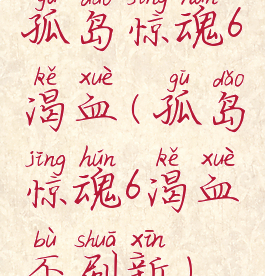 gū dǎo jīng hún
孤岛惊魂6
kě xuè gū dǎo
渴血(孤岛
jīng hún kě xuè
惊魂6渴血
bù shuā xīn
不刷新)